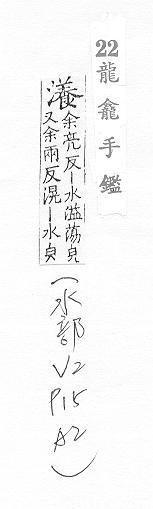 22 龍龕手鑑
瀁余亮反—水溢蕩皃
又余兩反滉—水皃
(水部 V2 P15 A2)